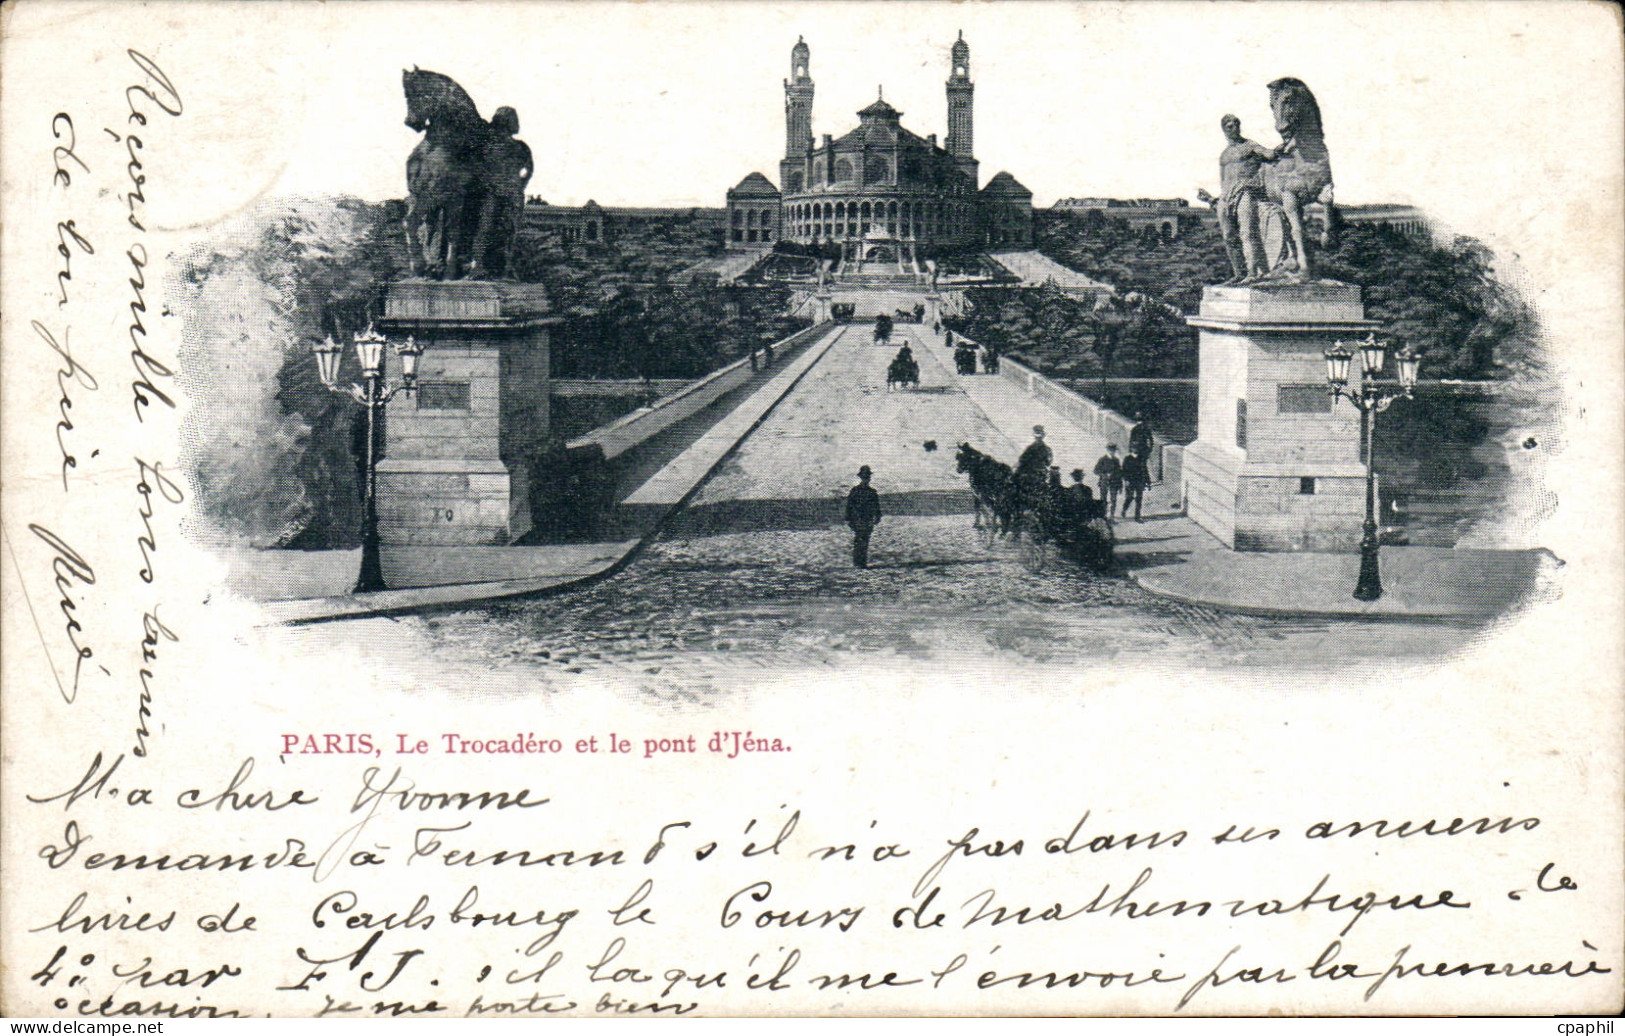 PARIS, Le Trocadéro et le pont d'Jéna.
Ma chère Yvonne
Demande à Fernand s'il n'a pas dans ses anciens
livres de Carlsbourg le Cours de Mathematique de
4º par F J. s'il la qu'il me l'envoie par la première
occasion. Je me porte bien
Reçois mille bons baisers
de ton frère
René
cpaphil
www.delcampe.net